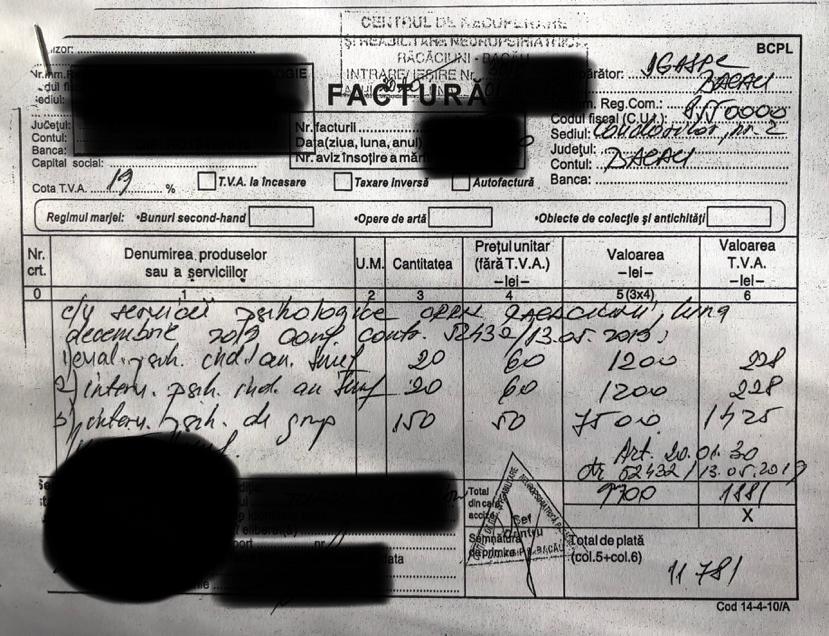 CENTRUL DE RECUPERARE
ȘI REABILITARE NEUROPSIHIATRICĂ
RĂCĂCIUNI - BACĂU
INTRARE/IEȘIRE Nr.
BCPL
FACTURĂ
Județul:
Contul:
Banca:
Capital social:
Cota T.V.A. 19 %
Nr. facturii
Data (ziua, luna, anul)
Nr. aviz însoțire a mărf
DGASPC
BACAU
Reg.Com.:
Codul fiscal (C.U.I.):
Sediul: nr. 2
Județul:
Contul: BACAU
Banca:
T.V.A. la încasare
Taxare inversă
Autofactură
Regimul marjei: •Bunuri second-hand •Opere de artă •Obiecte de colecție și antichități
Nr. crt. Denumirea produselor sau a serviciilor U.M. Cantitatea Prețul unitar (fără T.V.A.) –lei– Valoarea –lei– Valoarea T.V.A. –lei–
0 1 2 3 4 5 (3x4) 6
c/v servicii psihologice luna
decembrie 2019 conf. contr. 52432/13.05.2019:
1) eval. psih. ind. 20 60 1200 228
2) interv. psih. ind. 20 60 1200 228
3) interv. psih. de grup 150 50 7500 1425
Art. 20.01.30
ctr 52432/13.05.2019
Total din care: accize 9900 1881
X
Semnătura de primire
Șef Centru
Total de plată (col.5+col.6)
11781
Cod 14-4-10/A